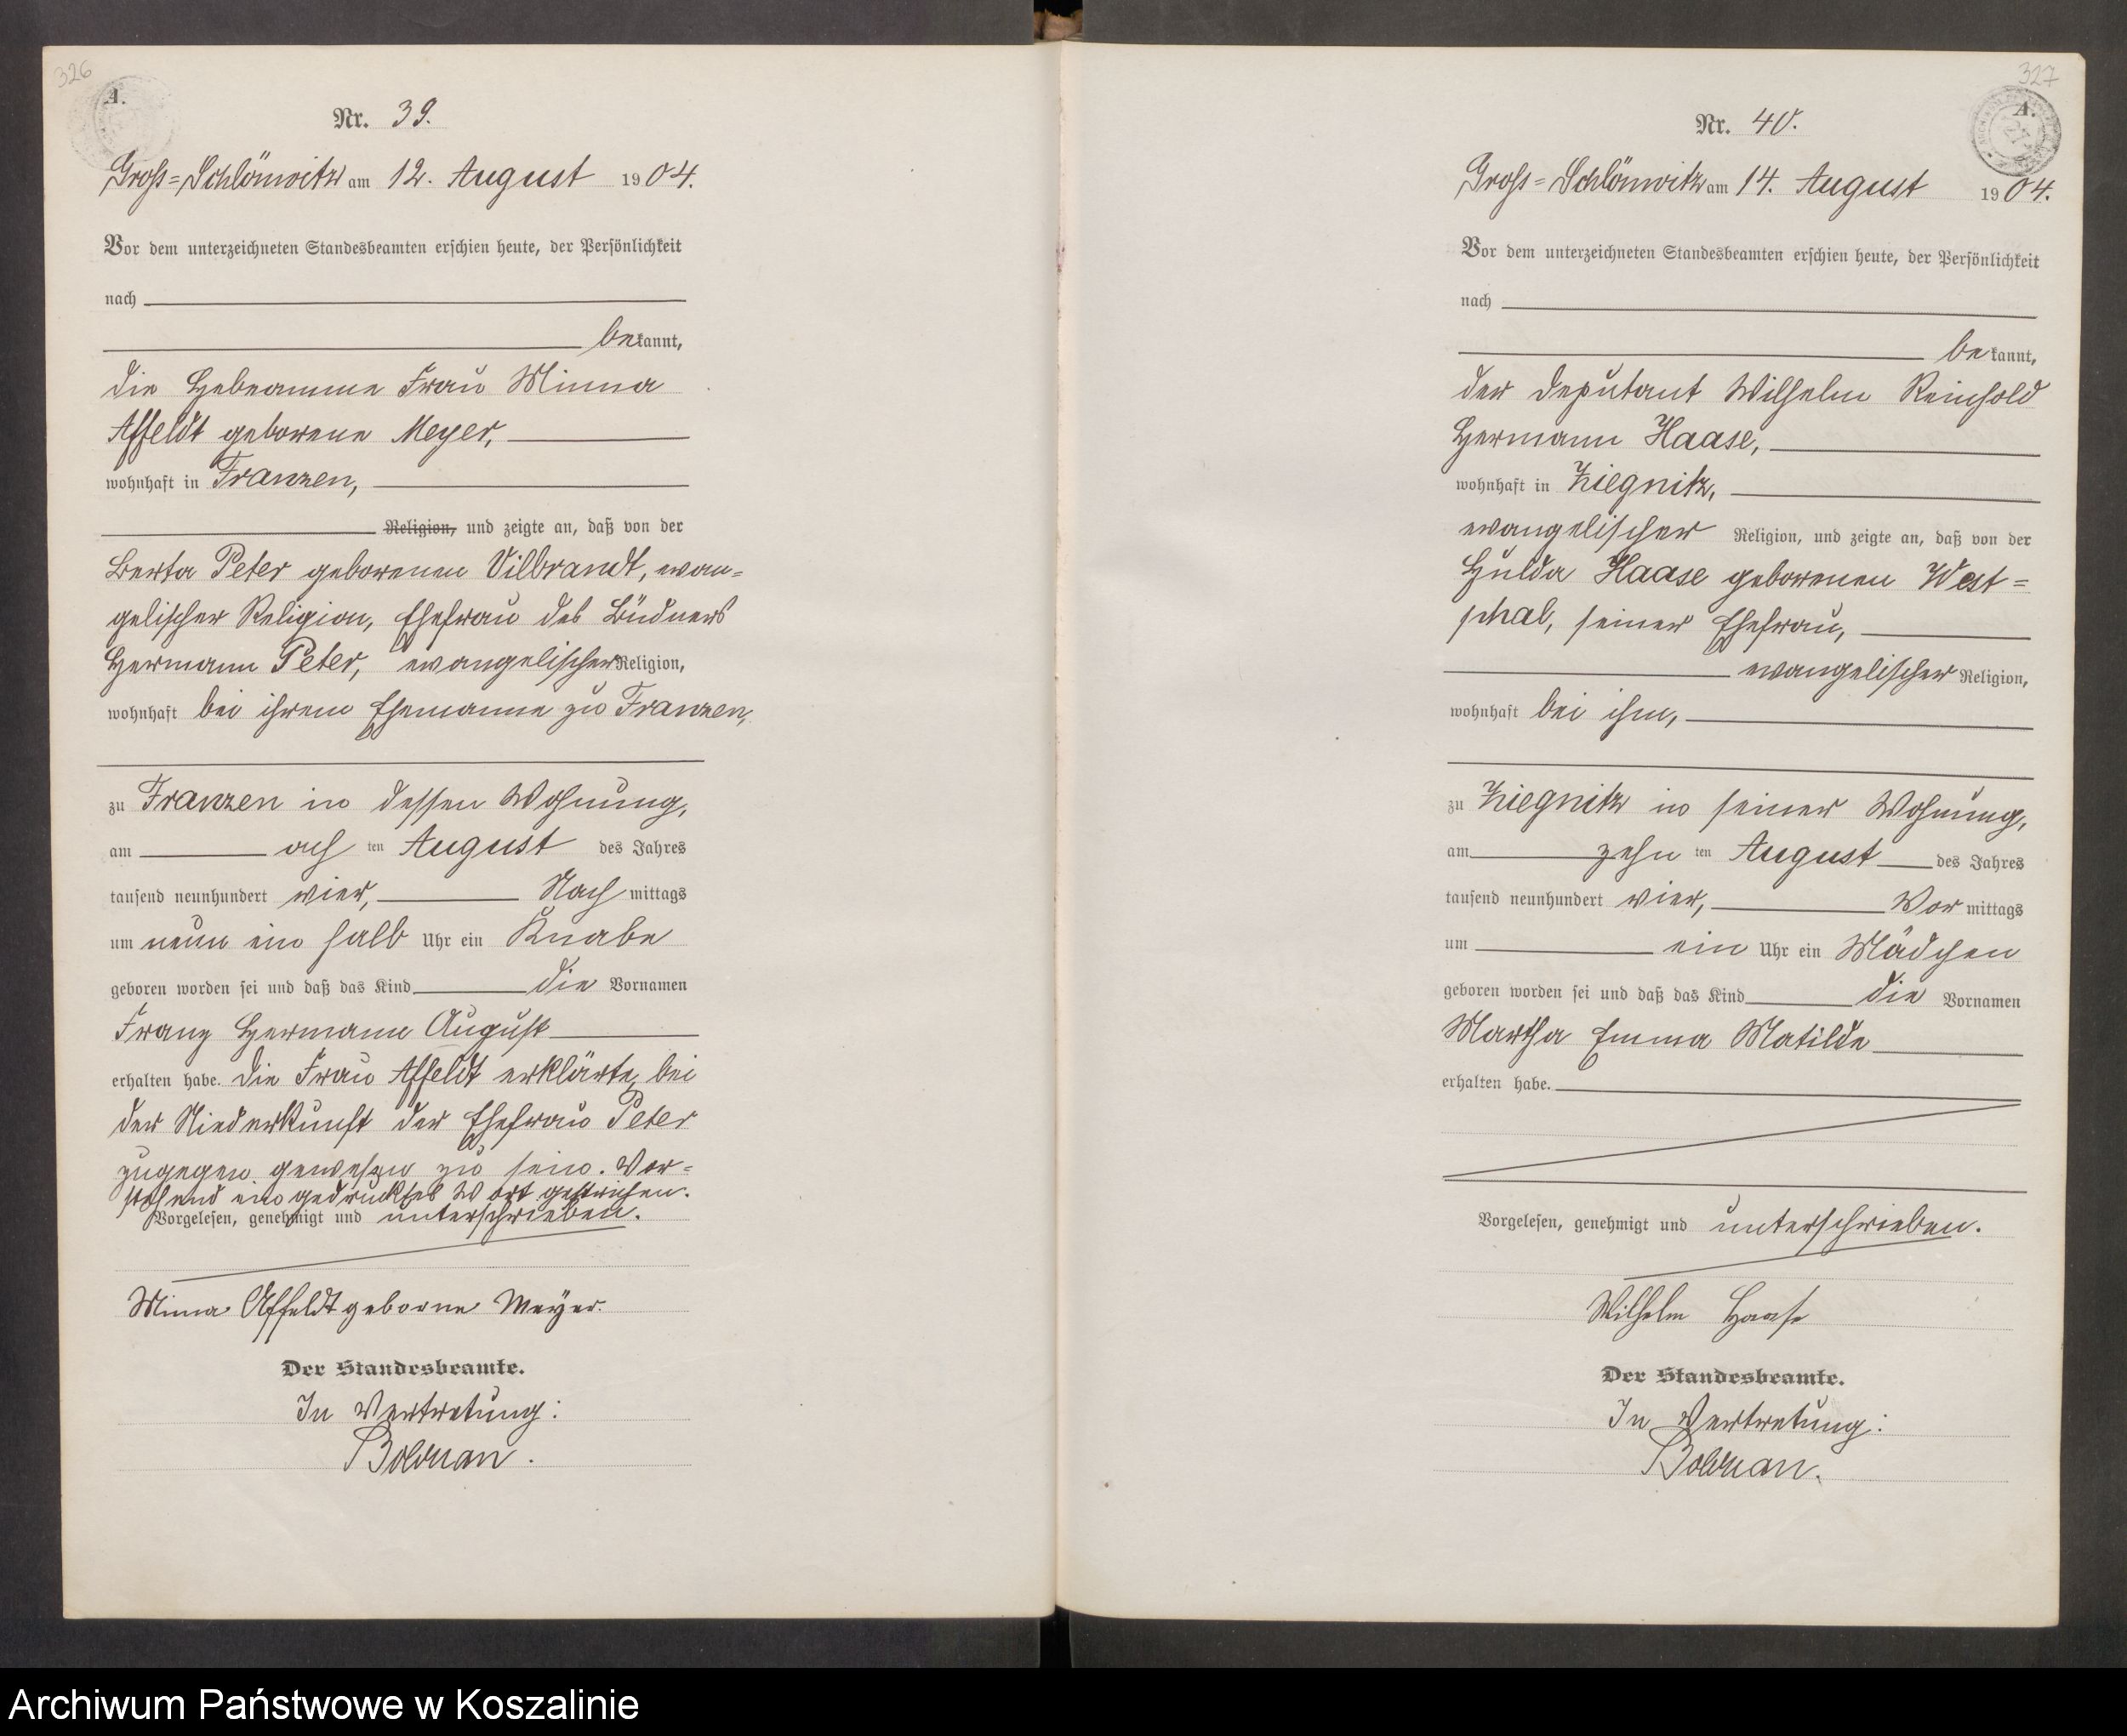 326
A.
Nr. 39.
Gross=Schlönwitz am 12. August 1904.
Vor dem unterzeichneten Standesbeamten erschien heute, der Persönlichkeit
nach
bekannt,
die Hebeamme Frau Minna
Affeldt geborene Meyer,
wohnhaft in Franzen,
Religion, und zeigte an, daß von der
Berta Peter geborenen Vilbrandt, evan=
gelischer Religion, Ehefrau des Büdners
Hermann Peter, evangelischer Religion,
wohnhaft bei ihrem Ehemanne zu Franzen,
zu Franzen in dessen Wohnung,
am ach ten August des Jahres
tausend neunhundert vier, Nach mittags
um neun ein halb Uhr ein Knabe
geboren worden sei und daß das Kind die Vornamen
Franz Hermann August
erhalten habe. Die Frau Affeldt erklärte, bei
der Niederkunft der Ehefrau Peter
zugegen gewesen zu sein. Vor=
stehend ein gedrucktes Wort gestrichen.
Vorgelesen, genehmigt und unterschrieben.
Minna Affeldt geborne Meyer.
Der Standesbeamte.
In Vertretung:
327
A.
Nr. 40.
Gross=Schlönwitz am 14. August 1904.
Vor dem unterzeichneten Standesbeamten erschien heute, der Persönlichkeit
nach
bekannt,
der Deputant Wilhelm Reinhold
Hermann Haase,
wohnhaft in Ziegnitz,
evangelischer Religion, und zeigte an, daß von der
Hulda Haase geborenen West=
phal, seiner Ehefrau,
evangelischer Religion,
wohnhaft bei ihm,
zu Ziegnitz in seiner Wohnung,
am zehn ten August des Jahres
tausend neunhundert vier, Vor mittags
um ein Uhr ein Mädchen
geboren worden sei und daß das Kind die Vornamen
Martha Emma Matilde
erhalten habe.
Vorgelesen, genehmigt und unterschrieben.
Wilhelm Haase
Der Standesbeamte.
In Vertretung:
Archiwum Państwowe w Koszalinie